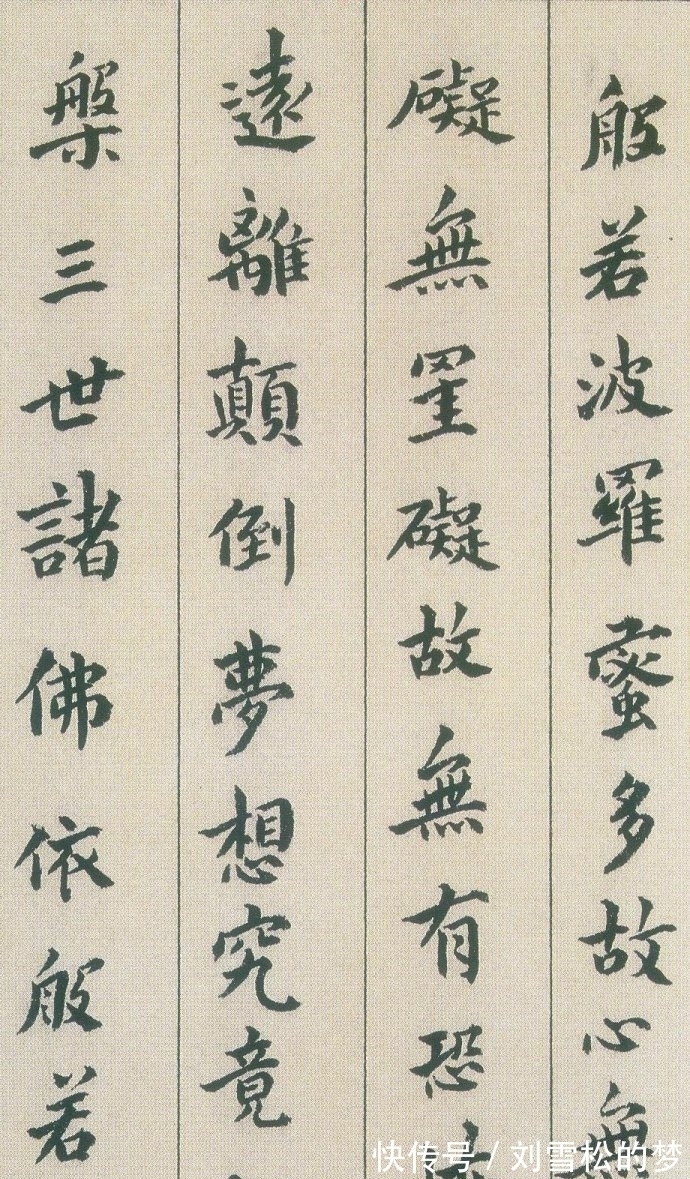 般若波羅蜜多故心無
礙無罣礙故無有恐
遠離顛倒夢想究竟
槃三世諸佛依般若
快传号 / 刘雪松的梦